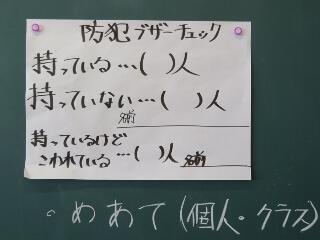 防犯ブザーチェック
持っている…( )人
持っていない…( )人
名前
持っているけど
こわれている…( )人 名前
。めあて(個人・クラス)